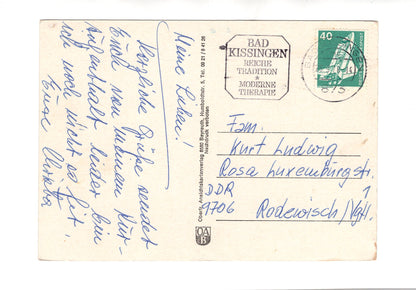 Meine Lieben!
Herzliche Grüße sendet
Euch von meinem Kur-
Aufenthalt leider bin
ich noch nicht so fit.
Eure
BAD
KISSINGEN
REICHE
TRADITION
*
MODERNE
THERAPIE
40
Fam.
Kurt Ludwig
Rosa Luxemburgstr.
1
DDR
9706 Rodewisch/Vgtl.
Oberfr. Ansichtskartenverlag 8580 Bayreuth, Humboldtstr. 5, Tel. 09 21 / 5 41 26
Nachdruck verboten